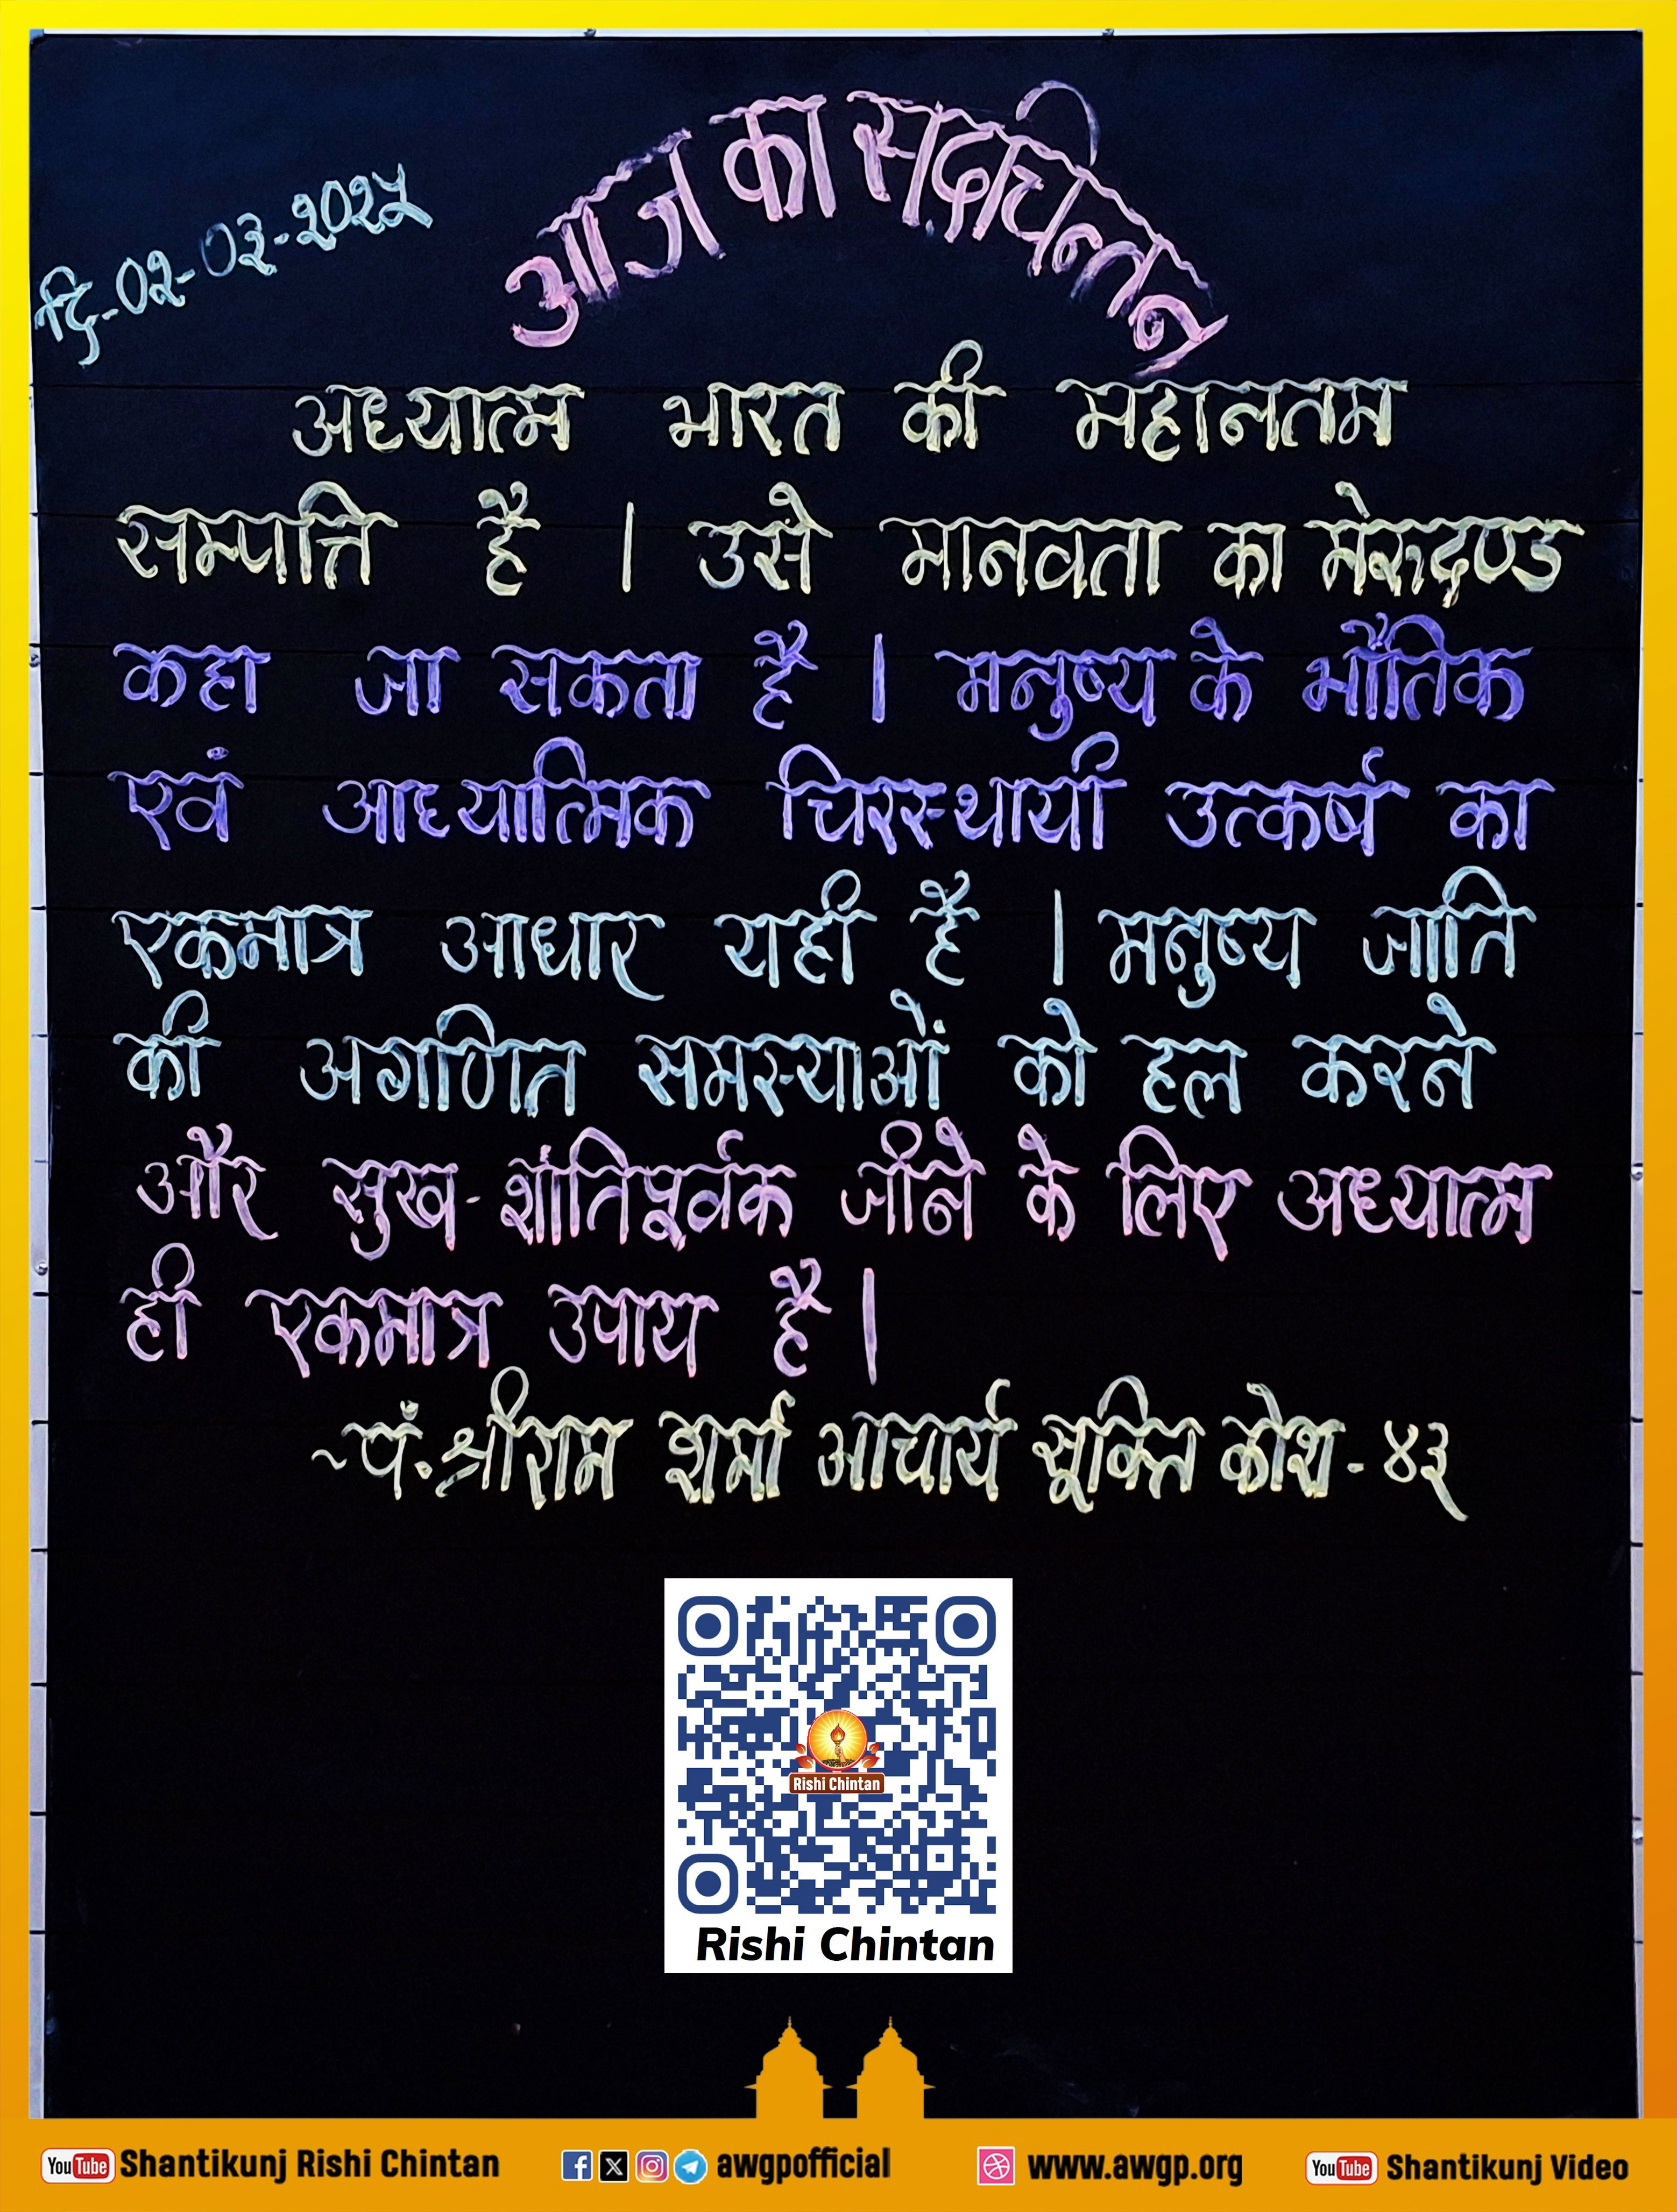 दि-०२-०३-२०२५
आज का सद्चिन्तन
अध्यात्म भारत की महानतम
सम्पत्ति है । उसे मानवता का मेरुदण्ड
कहा जा सकता है । मनुष्य के भौतिक
एवं आध्यात्मिक चिरस्थायी उत्कर्ष का
एकमात्र आधार यही है । मनुष्य जाति
की अगणित समस्याओं को हल करने
और सुख-शांतिपूर्वक जीने के लिए अध्यात्म
ही एकमात्र उपाय है ।
~पं.श्रीराम शर्मा आचार्य सूक्ति कोश-४३
Rishi Chintan
Rishi Chintan
YouTube Shantikunj Rishi Chintan awgpofficial www.awgp.org YouTube Shantikunj Video